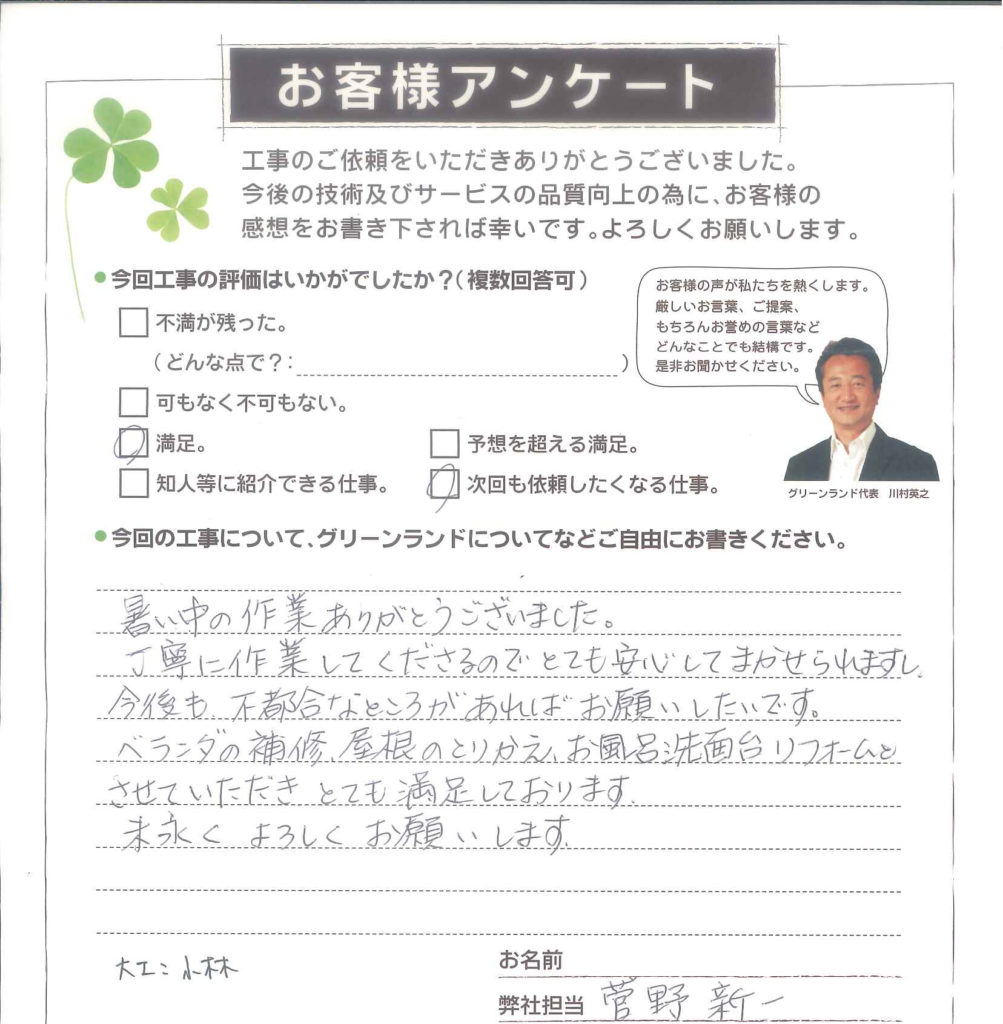 お客様アンケート
工事のご依頼をいただきありがとうございました。
今後の技術及びサービスの品質向上の為に、お客様の
感想をお書き下されば幸いです。よろしくお願いします。
今回工事の評価はいかがでしたか？（複数回答可）
不満が残った。
（どんな点で？：　）
可もなく不可もない。
満足。
予想を超える満足。
知人等に紹介できる仕事。
次回も依頼したくなる仕事。
お客様の声が私たちを熱くします。
厳しいお言葉、ご提案、
もちろんお誉めの言葉など
どんなことでも結構です。
是非お聞かせください。
グリーンランド代表　川村英之
今回の工事について、グリーンランドについてなどご自由にお書きください。
暑い中の作業ありがとうございました。
丁寧に作業してくださるのでとても安心してまかせられますし、
今後も、不都合なところがあればお願いしたいです。
ベランダの補修、屋根のとりかえ、お風呂洗面台リフォームと
させていただきとても満足しております。
末永くよろしくお願いします。
大工：小林
お名前
弊社担当 菅野新一